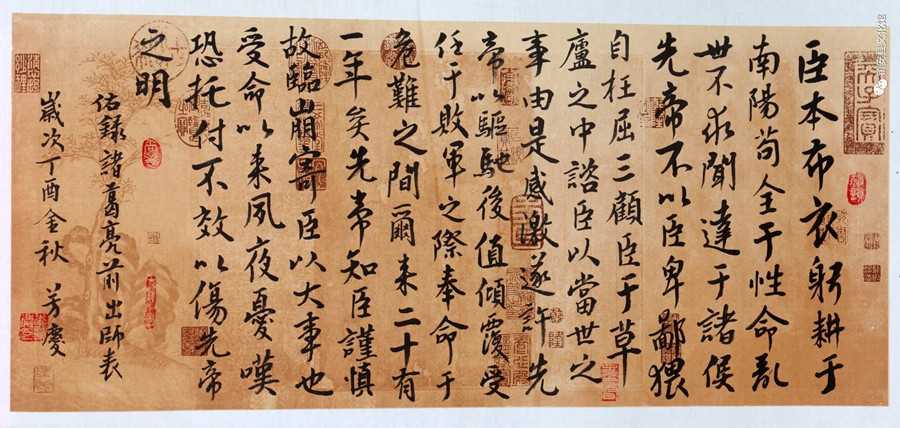 臣本布衣躬耕于
南陽苟全于性命亂
世不求聞達于諸侯
先帝不以臣卑鄙猥
自枉屈三顧臣于草
廬之中諮臣以當世之
事由是感激遂許先
帝以驅馳後值傾覆受
任于敗軍之際奉命于
危難之間爾来二十有
一年矣先帝知臣謹慎
故臨崩寄臣以大事也
受命以来夙夜憂嘆
恐托付不效以傷先帝
之明
佑錄諸葛亮前出師表
歲次丁酉金秋 芳慶